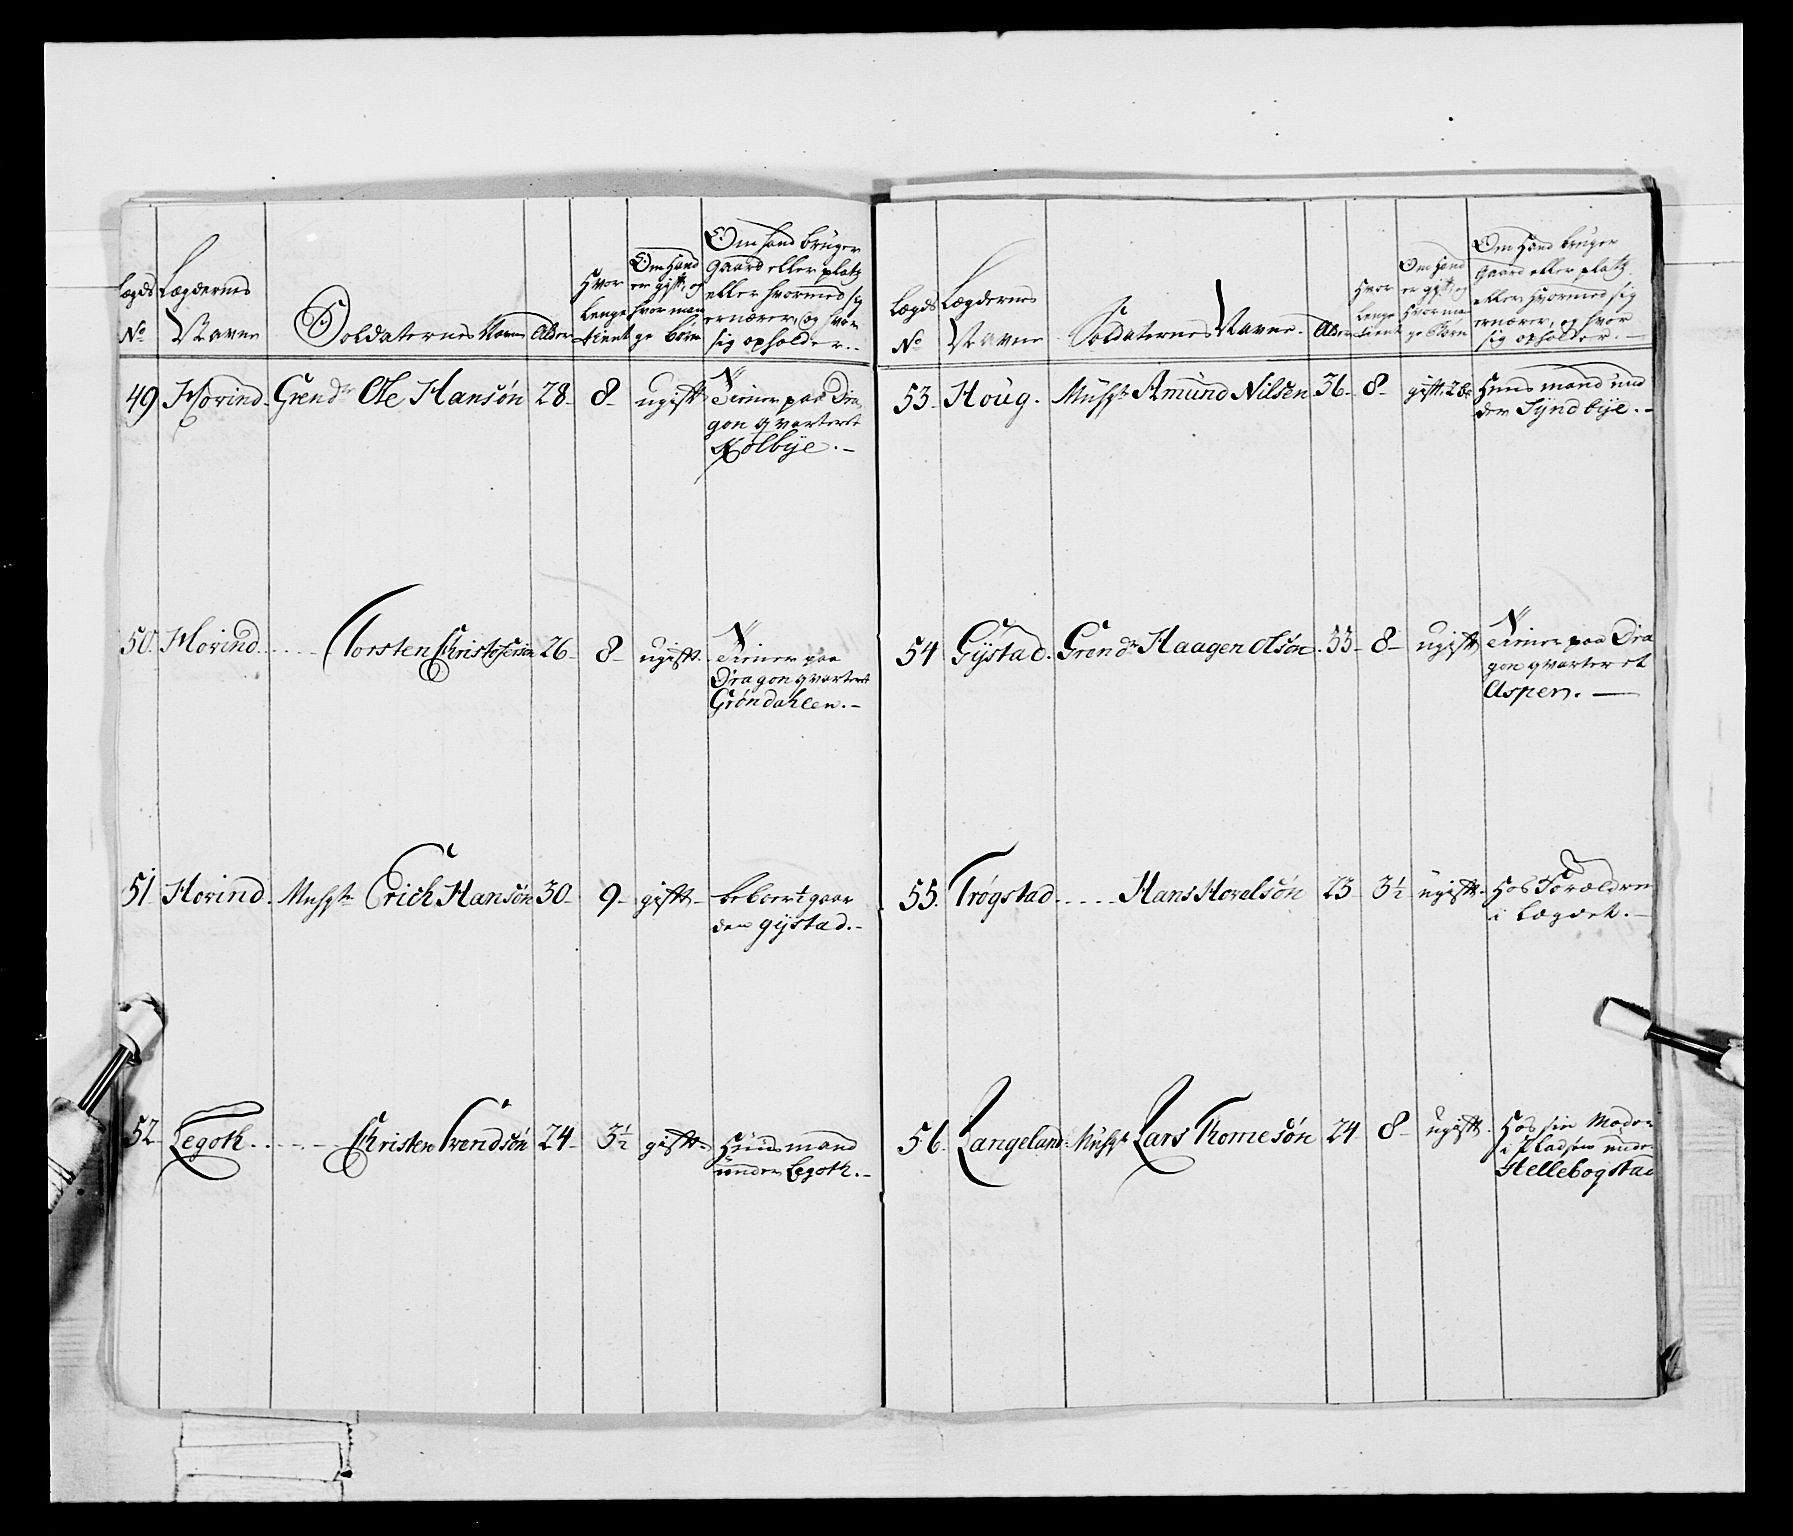 Lægds No
Lægdernes Navne
Soldaternes Navne
Alder
Hvor lenge tient
Om Hand er gift, og hvor mange børn
Om hand bruger
gaard eller platz
eller hvormed sig
ernærer, og hvor
sig opholder.-
49 Hovind. Grendr Ole Hansøn 28- 8- ugift Tiener paa Dra
gon qvarteret
Kolbye.-
50. Hovind..... Torsten Christofersøn 26- 8- ugift. Tiener paa
Dragon qvarteret
Grøndahlen.-
51 Hovind. Musqr Erich Hansøn 30- 9- gift- beboer gaar
den gÿstad.-
52. Legoth...... Christen Svendsøn 24- 3½ gift- Huusmand
under Legoth.-
Lægds No
Lægdernes Navne
Soldaternes Navne.
Alder
Hvor lenge tient
Om Hand er gift, og hvor mange Børn
Om Hand bruger
gaard eller platz
eller hvormed sig
ernærer, og hvor
sig opholder.-
53. Houg. Musqr Amund Nilsen 36- 8- gift. 2B. Huusmand und
der Sÿndbÿe.-
54 Gÿstad. Grendr Haagen Olsøn. 33- 8- ugift Tiener paa Dra
gon qvarteret
Aspen.-
55. Trøgstad..... Hans Hovelsøn 23- 3½ ugift. Hos Forældrene
i Lægdet.-
56. Langeland. Musqr Lars Thomesøn 24 8- ugift. Hos sin Moder
i Pladsen under
Hellebogstad